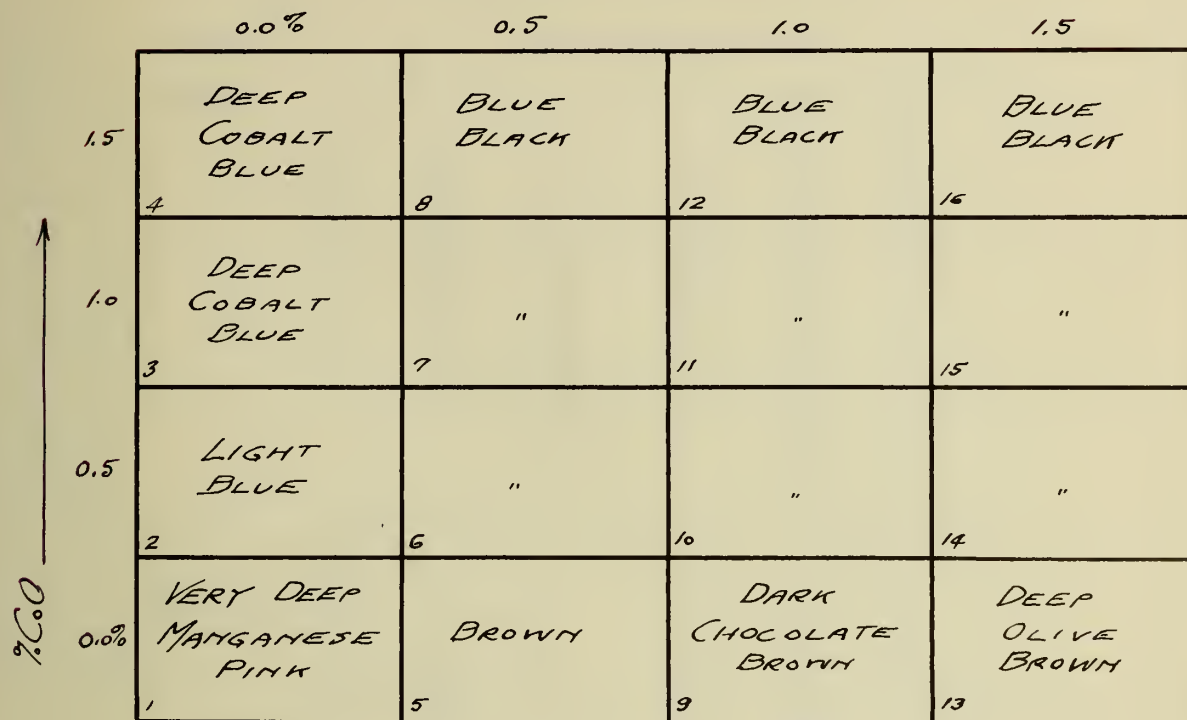 0.0% 0.5 1.0 1.5
1.5
DEEP
COBALT
BLUE
4
BLUE
BLACK
8
BLUE
BLACK
12
BLUE
BLACK
16
1.0
DEEP
COBALT
BLUE
3
"
7
"
11
"
15
0.5
LIGHT
BLUE
2
"
6
"
10
"
14
%CoO
0.0%
VERY DEEP
MANGANESE
PINK
1
BROWN
5
DARK
CHOCOLATE
BROWN
9
DEEP
OLIVE
BROWN
13